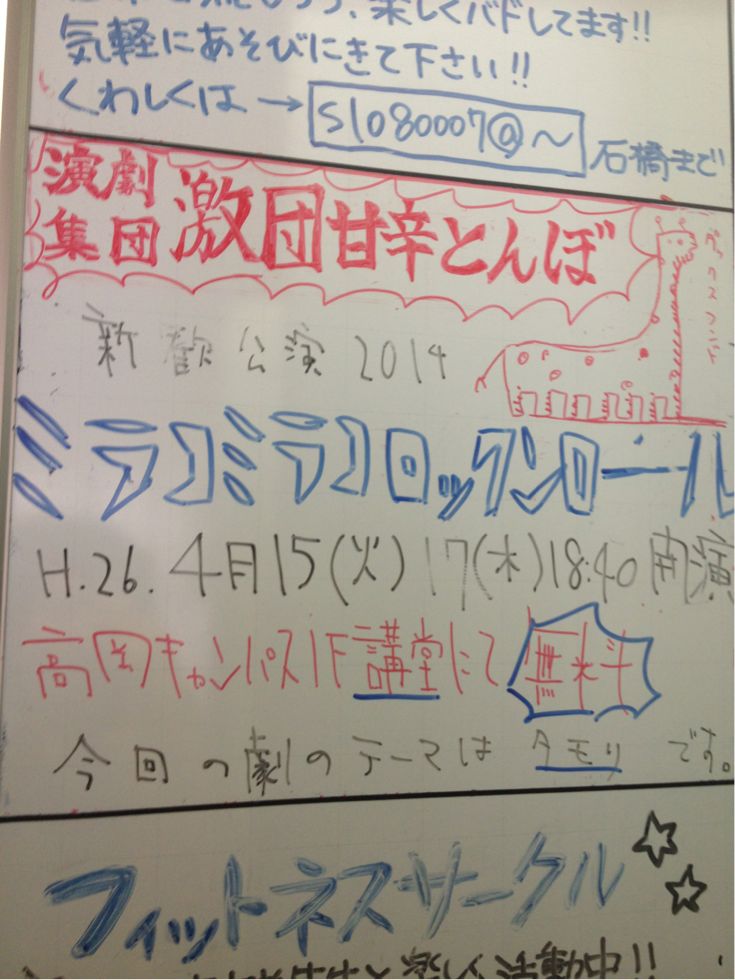 楽しくバドしてます!!
気軽にあそびにきて下さい!!
くわしくは → s1080007@〜 石橋まで
演劇集団 激団甘辛とんぼ
新歓公演 2014
ミラコミラコロックンロール
H.26. 4月15(火) 17(木) 18:40 開演
高岡キャンパス1F 講堂にて 無料
今回の劇のテーマは タモリ です。
フィットネスサークル
楽しく活動中!!